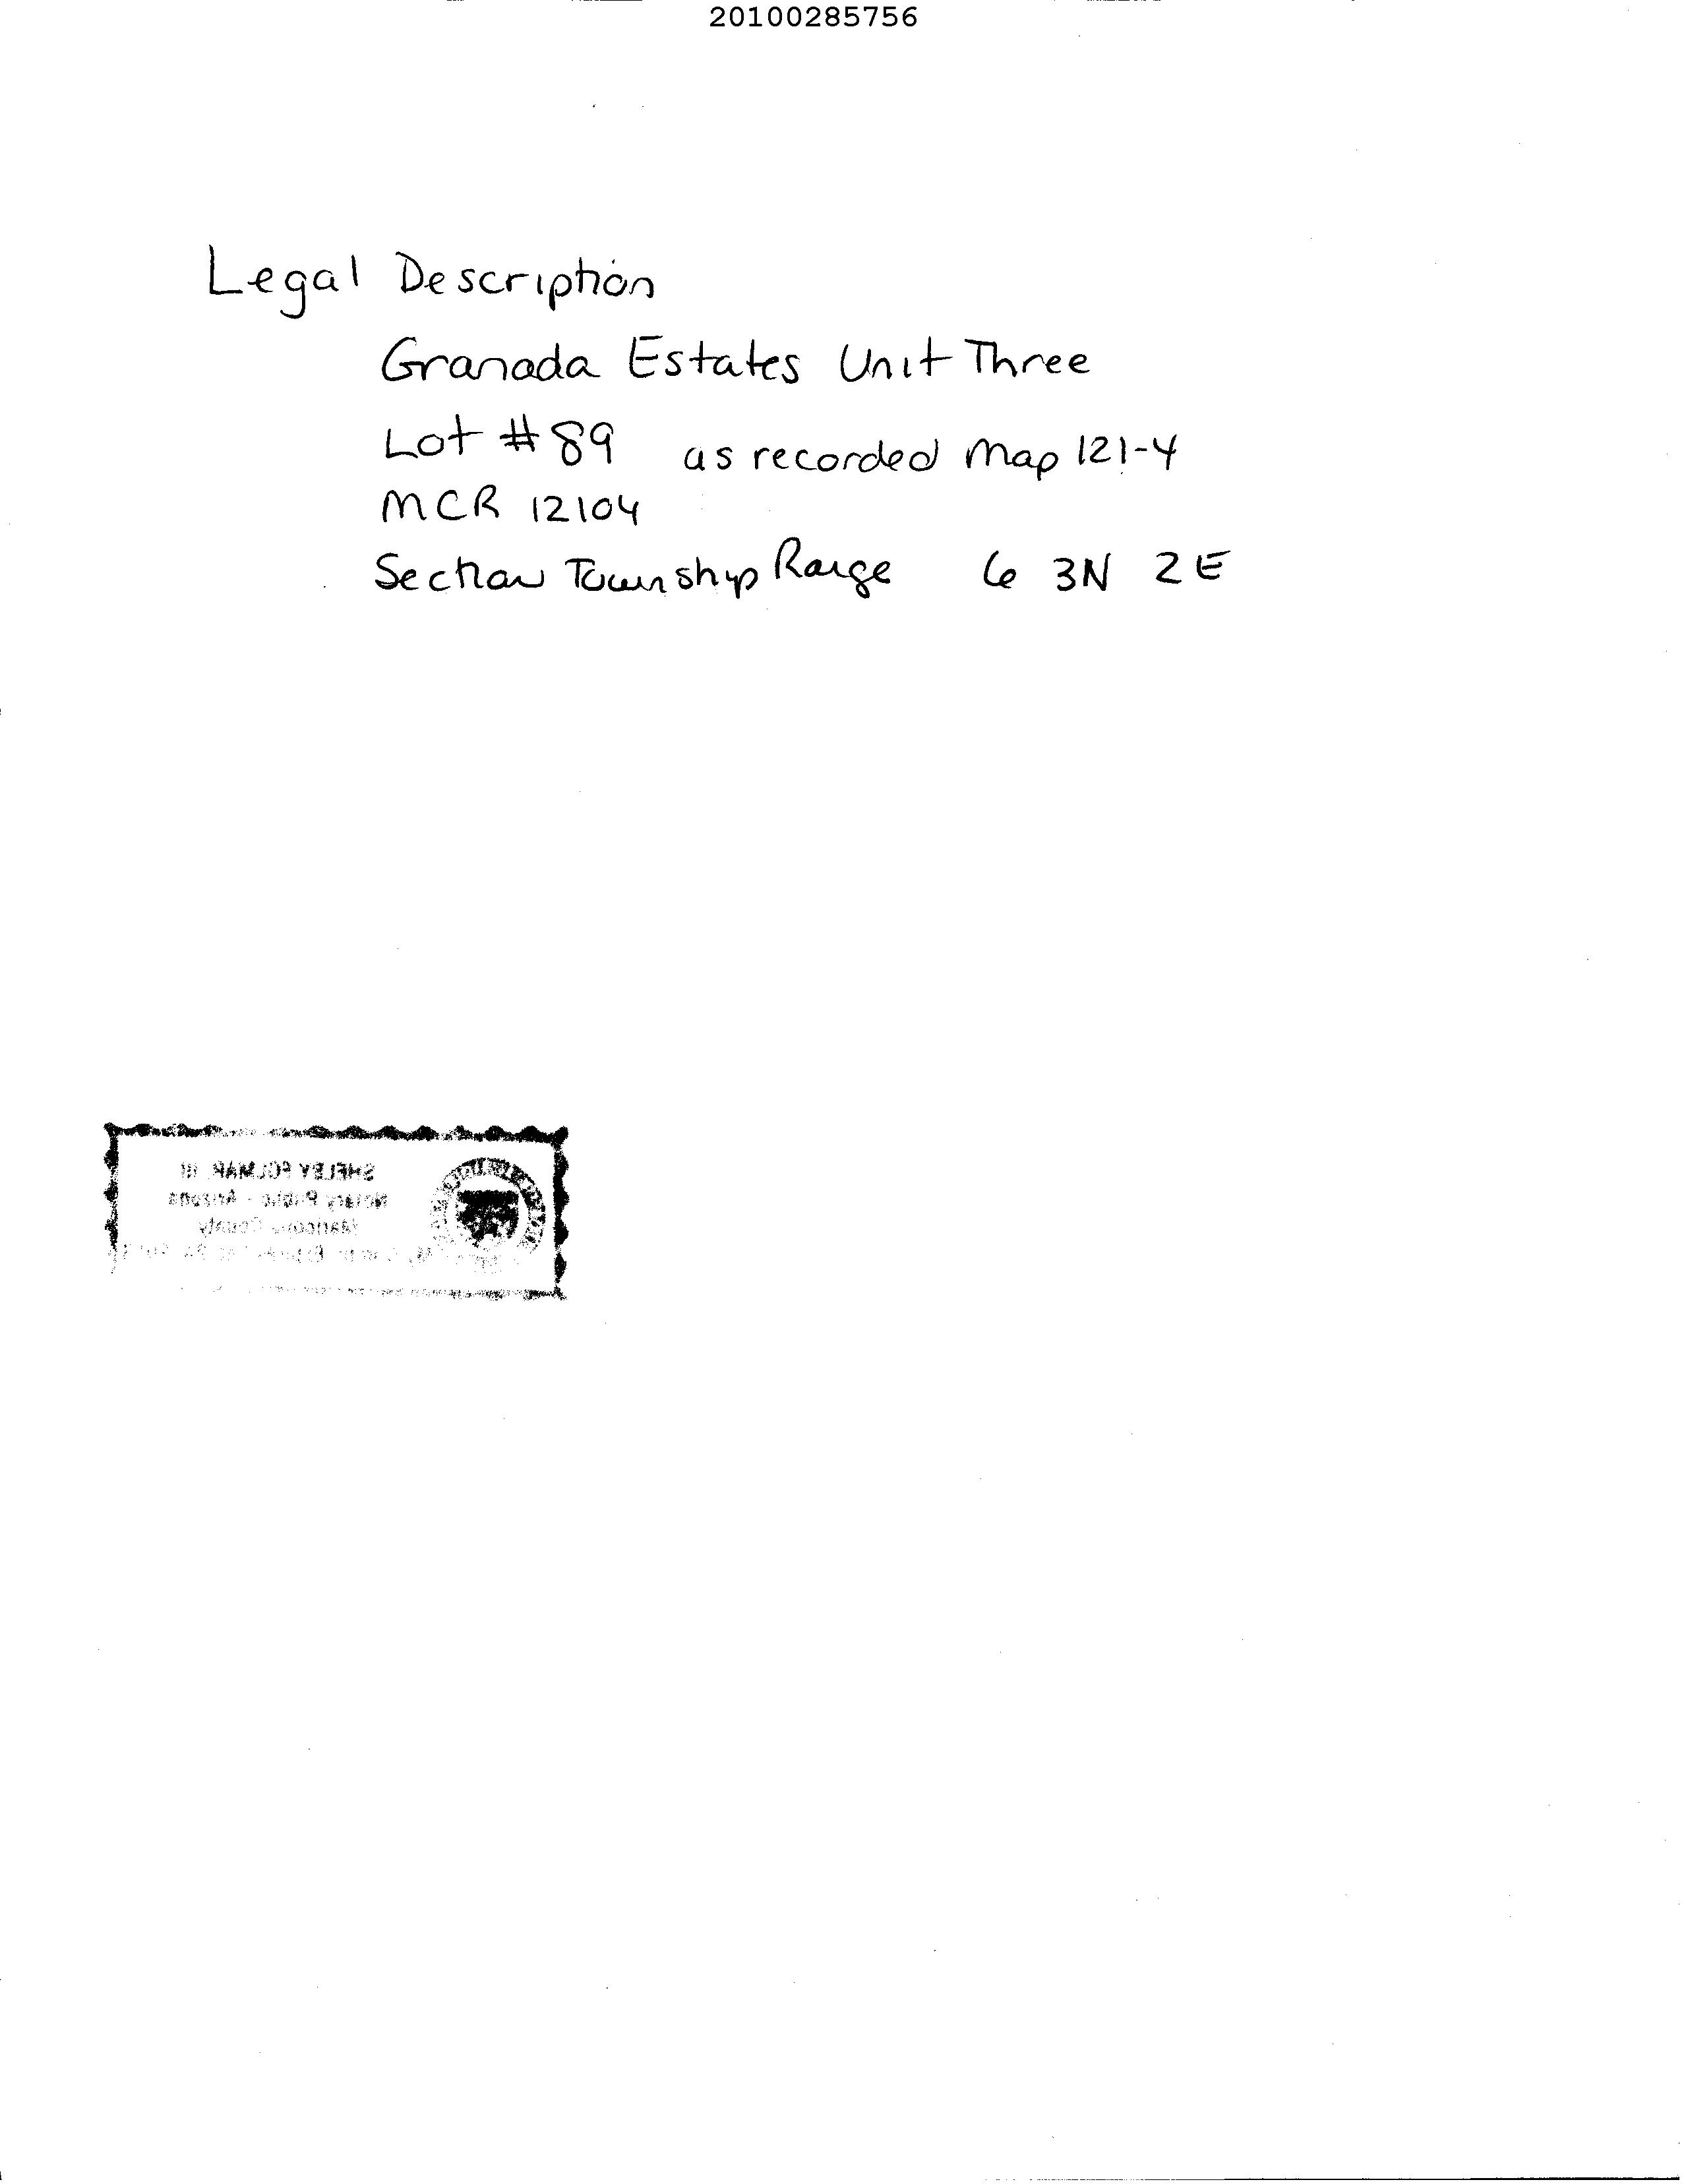 20100285756
Legal Description
Granada Estates Unit Three
Lot #89 as recorded Map 121-4
MCR 12104
Section Township Range 6 3N 2E
SHELBY FOLMAR III
Notary Public - Arizona
Maricopa County